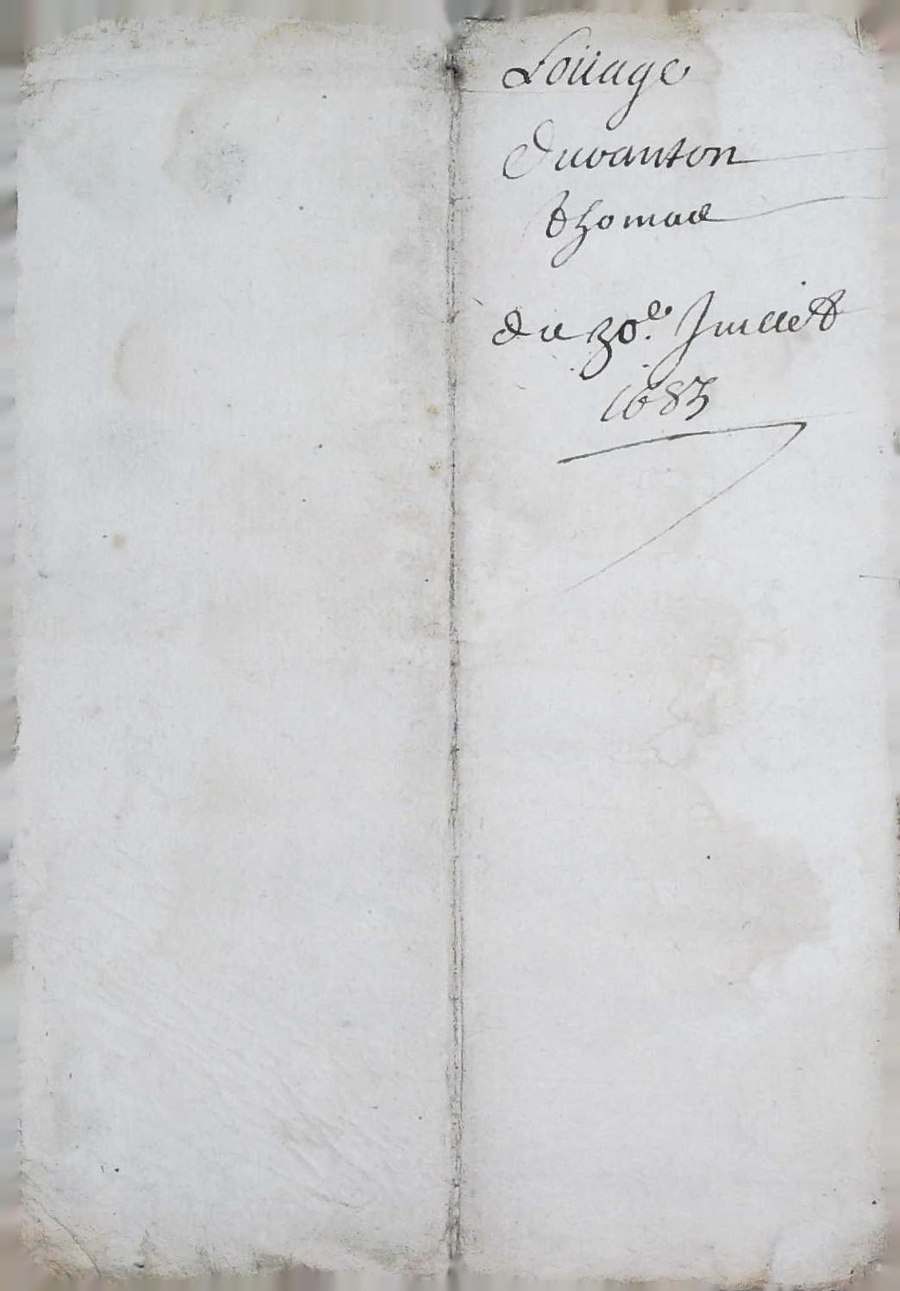 Loüage
Duvanton
thomas
du 30e. Juillet
1683